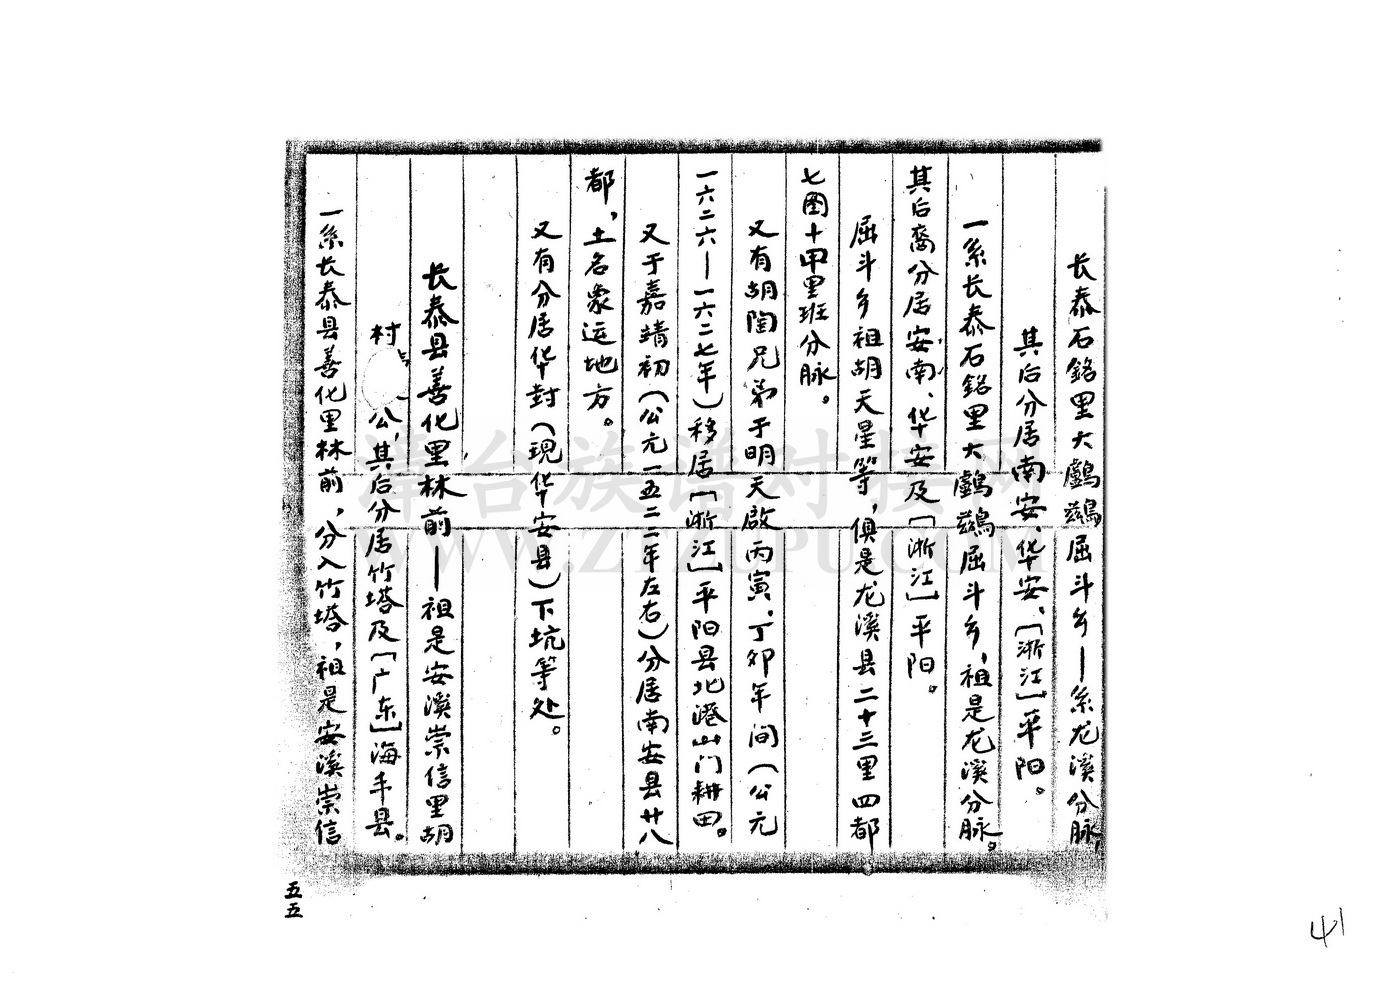 长泰石銘里大鸕鷀屈斗乡——系龙溪分脉,
其后分居南安、华安、[浙江]平阳。
一系长泰石銘里大鸕鷀屈斗乡,祖是龙溪分脉。
其后裔分居安南、华安及[浙江]平阳。
屈斗乡祖胡天星等,俱是龙溪县二十三里四都
七图十甲里班分脉。
又有胡陶兄弟于明天啟丙寅、丁卯年间(公元
一六二六—一六二七年)移居[浙江]平阳县北港山门耕田。
又于嘉靖初(公元一五二二年左右)分居南安县廿八
都,土名象运地方。
又有分居华封(現华安县)下坑等处。
长泰县善化里林前——祖是安溪崇信里胡
村 公,其后分居竹塔及[广东]海丰县。
一系长泰县善化里林前,分入竹塔,祖是安溪崇信
五五
41
漳台族谱对接网
WWW.ZTZUPU.COM